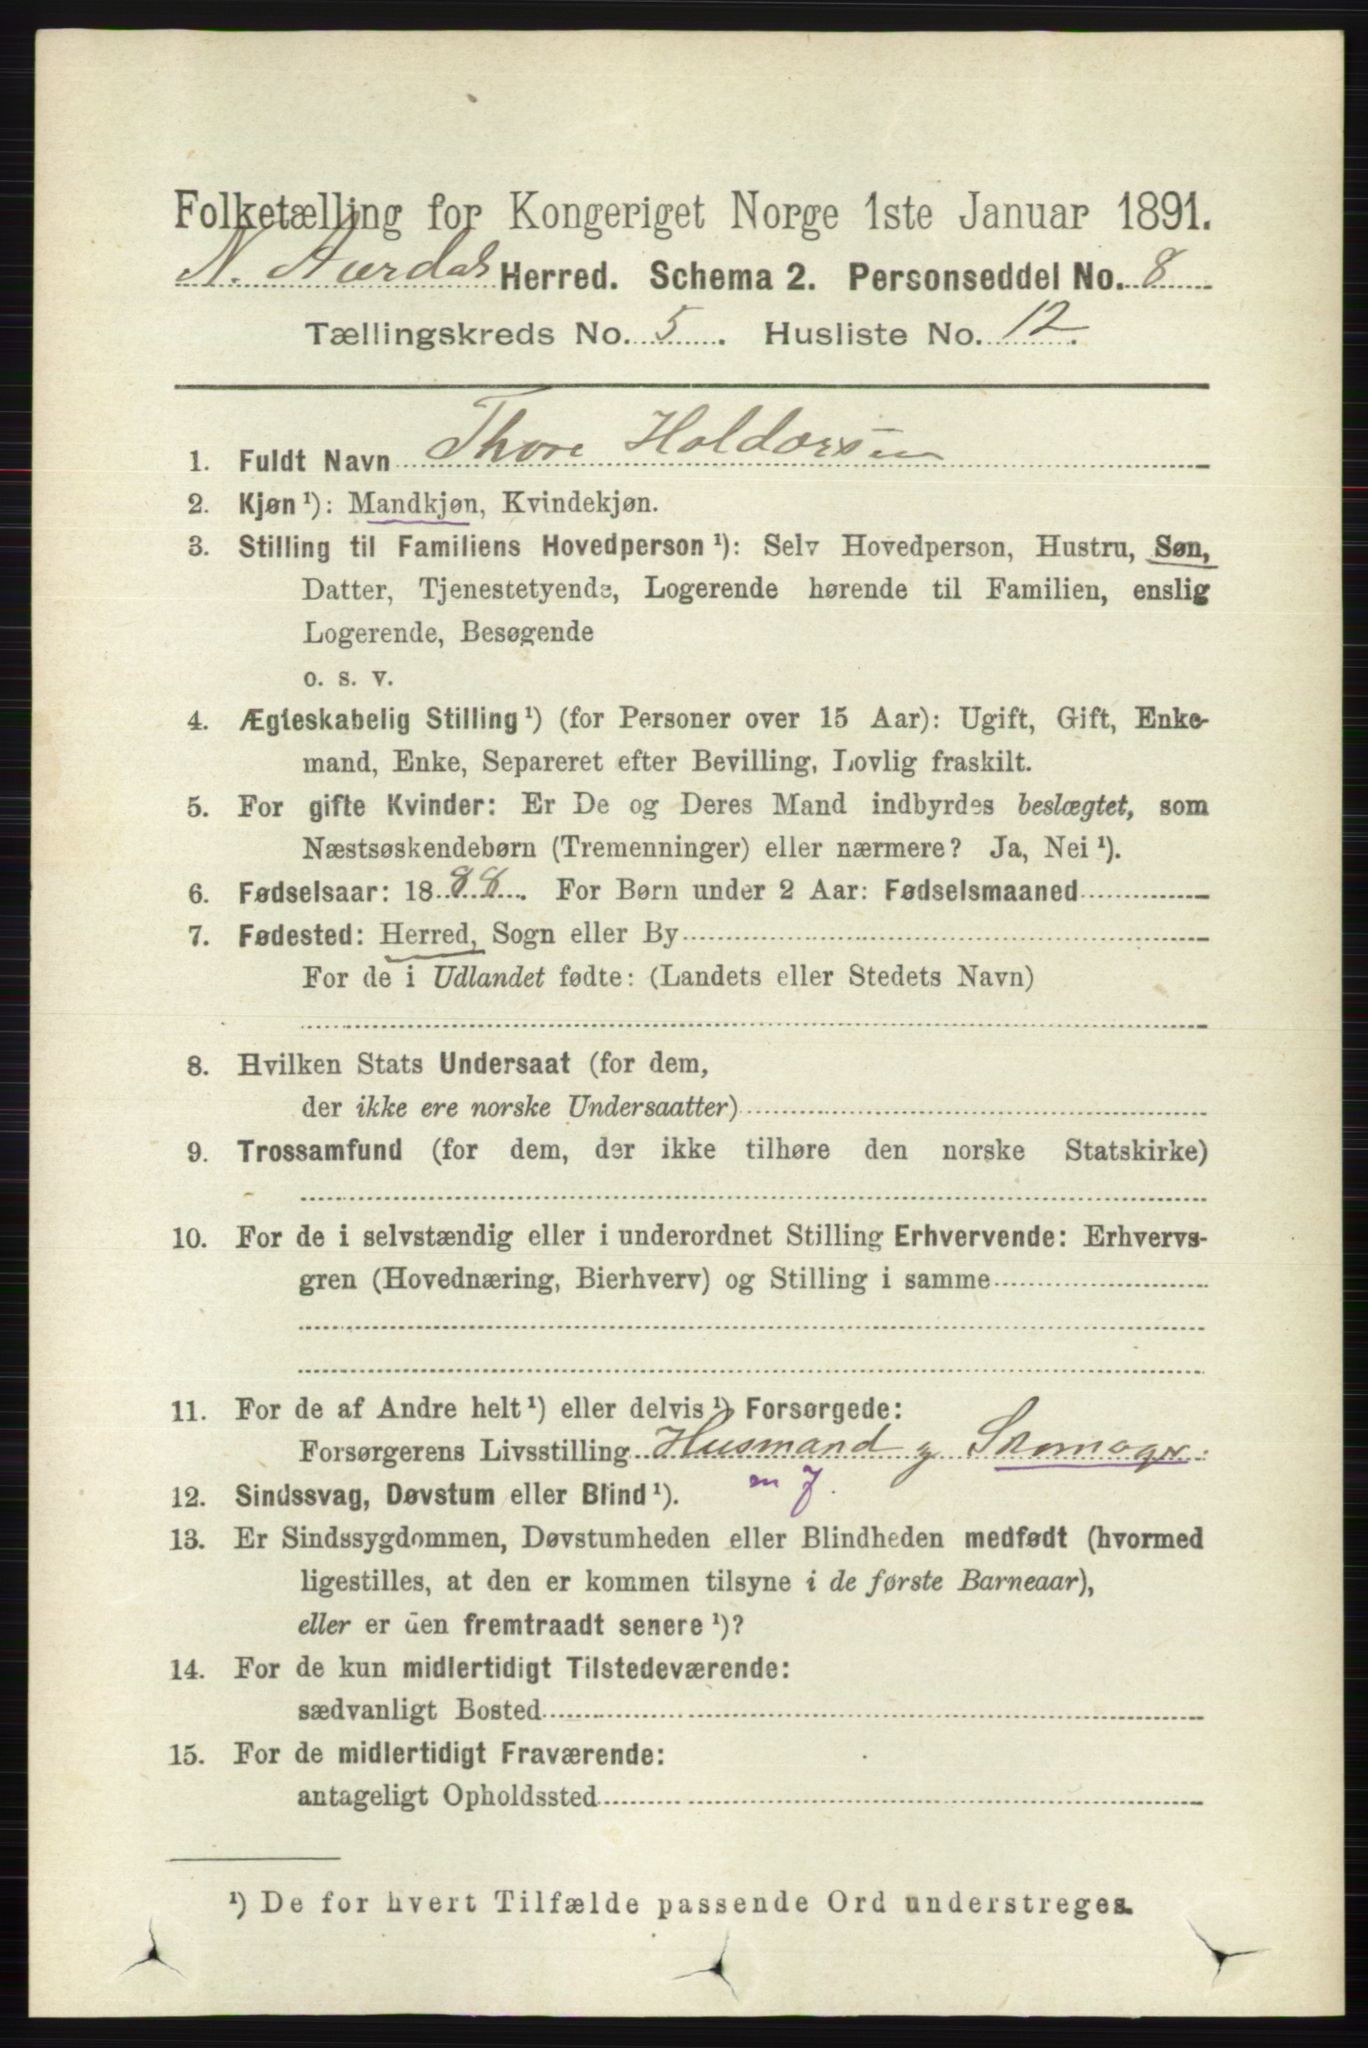 Folketælling for Kongeriget Norge 1ste Januar 1891.
N. Aurdals Herred. Schema 2. Personseddel No. 8
Tællingskreds No. 5. Husliste No. 12.
1. Fuldt Navn Thore Haldorsen
2. Kjøn¹): Mandkjøn, Kvindekjøn.
3. Stilling til Familiens Hovedperson¹): Selv Hovedperson, Hustru, Søn,
Datter, Tjenestetyende, Logerende hørende til Familien, enslig
Logerende, Besøgende
o. s. v.
4. Ægteskabelig Stilling¹) (for Personer over 15 Aar): Ugift, Gift, Enke-
mand, Enke, Separeret efter Bevilling, Lovlig fraskilt.
5. For gifte Kvinder: Er De og Deres Mand indbyrdes beslægtet, som
Næstsøskendebørn (Tremenninger) eller nærmere? Ja, Nei¹).
6. Fødselsaar: 1888. For Børn under 2 Aar: Fødselsmaaned
7. Fødested: Herred, Sogn eller By
For de i Udlandet fødte: (Landets eller Stedets Navn)
8. Hvilken Stats Undersaat (for dem,
der ikke ere norske Undersaatter)
9. Trossamfund (for dem, der ikke tilhøre den norske Statskirke)
10. For de i selvstændig eller i underordnet Stilling Erhvervende: Erhvervs-
gren (Hovednæring, Bierhverv) og Stilling i samme
11. For de af Andre helt¹) eller delvis¹) Forsørgede:
Forsørgerens Livsstilling Husmand g Skomager.
12. Sindssvag, Døvstum eller Blind¹).
13. Er Sindssygdommen, Døvstumheden eller Blindheden medfødt (hvormed
ligestilles, at den er kommen tilsyne i de første Barneaar),
eller er den fremtraadt senere¹)?
14. For de kun midlertidigt Tilstedeværende:
sædvanligt Bosted
15. For de midlertidigt Fraværende:
antageligt Opholdssted
¹) De for hvert Tilfælde passende Ord understreges.